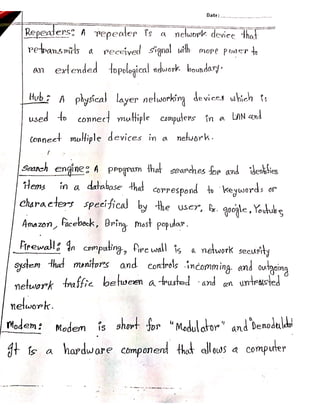 Date:
Repeaters: A repeater is a network device that
retransmits a received signal with more power to
an extended topological network boundary.
Hub: A physical layer networking devices which is
used to connect multiple computers in a LAN and
connect multiple devices in a network.
Search engine: A program that searches for and identifies
items in a database that correspond to keywords or
characters specified by the user, Ex. google, Youtube,
Amazon, Facebook, Bring most popular.
Firewall: In computing, firewall is a network security
system that monitors and controls incomming and outgoing
network traffic between a trusted and an untrusted
network.
Modem: Modem is short for "Modulator" and "Demodulator"
It is a hardware component that allows a computer